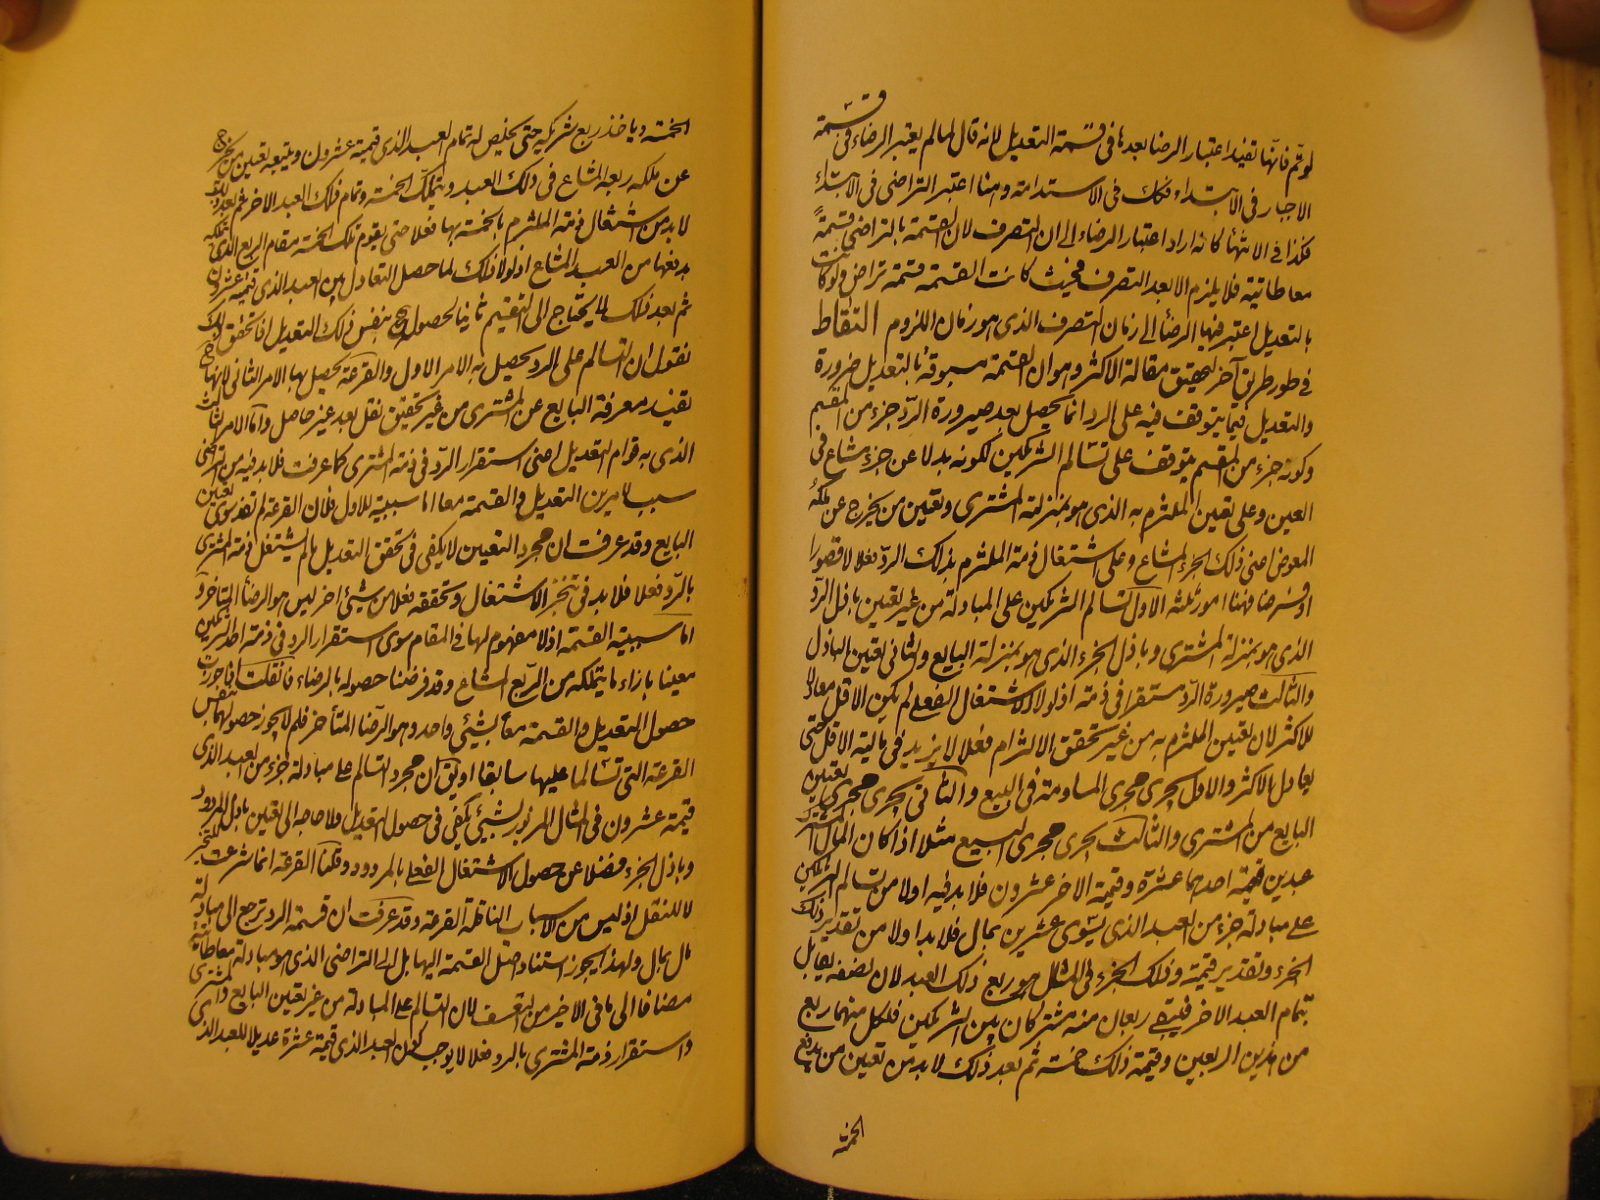 لو تم فانها تفيد اعتبار الرضا بعدها في قسمة التعديل لانه قال لما لم يعتبر الرضاء في قسمة
الاجبار في الابتداء فكك في الاستدامة وهنا اعتبر التراضي في الابتداء
فكذا في الانتهأ كانه اراد اعتبار الرضاء الى ان التصرف لان القسمة بالتراضي قسمة
معاطاتية فلا يلزم الا بعد التصرف فحيث كانت القسمة قسمة تراض ولو كانت
بالتعديل اعتبر فيها الرضأ الى زمان التصرف الذي هو زمان اللزوم التقاط
في طور طريق آخر لتحقيق مقالة الاكثر وهو ان القسمة مسبوقة بالتعديل ضرورة
والتعديل فيما يتوقف فيه على الرد انما يحصل بعد صيرورة الرد جزء من المقسم
وكونه جزء من المقسم يتوقف على تسالم الشريكين لكونه بدلا عن جزء مشاع في
العين وعلى تعيين الملتزم به الذي هو بمنزلة المشتري وتعيين من يخرج عن ملكه
المعوض اعني ذلك الجزء المشاع وعلى اشتغال ذمة الملتزم بذلك الرد فعلا لا قصورا
او فرضا فهنا امور ثلثه الاول تسالم الشريكين على المبادلة من غير تعيين باذل الرد
الذي هو بمنزلة المشتري وباذل الجزء الذي هو بمنزلة البايع والثاني تعيين الباذل
والثالث صيرورة الرد مستقرا في ذمته اذ لولا الاشتغال الفعلي لم يكن الاقل معادلا
للاكثر لان تعيين الملتزم به من غير تحقق الالتزام فعلا لا يزيد في مالية الاقل حتى
يعادل الاكثر والاول يجري مجرى المساومة في البيع والثاني يجري مجرى تعيين
البايع من المشتري والثالث يجري مجرى البيع مثلا اذا كان المال المشترك
عبدين قيمة احدهما عشرة وقيمة الاخر عشرون فلا بد فيه اولا من تسالم الشريكين
على مبادلة جزء من العبد الذي يسوى عشرين بمال فلا بد اولا من تقدير ذلك
الجزء وتقدير قيمته وذلك الجزء في المثال هو ربع ذلك العبد لان نصفه يقابل
بتمام العبد الاخر فيبقى ربعان منه مشتركان بين الشريكين فلكل منهما ربع
من هذين الربعين وقيمة ذلك خمسة ثم بعد ذلك لا بد من تعيين من يدفع
الخمسة
الخمسة وياخذ ربع شريكه حتى يخلص له تمام العبد الذي قيمته عشرون ويتبعه تعيين من يخرج
عن ملكه ربعه المشاع في ذلك العبد ويتملك الخمسة وتمام ذلك العبد الاخر ثم بعد ذلك
لا بد من اشتغال ذمة الملتزم بالخمسة بها فعلا حتى يقوم تلك الخمسة مقام الربع الذي تملكه
بدفعها من العبد المشاع اذ لولا ذلك لما حصل التعادل بين العبد الذي قيمته عشرون
ثم بعد ذلك لا يحتاج الى التقسيم ثانيا لحصوله ح بنفس ذلك التعديل اذا تحقق ذلك
نقول ان التسالم على الرد يحصل به الامر الاول والقرعة يحصل بها الامر الثاني لانها
تفيد معرفة البايع عن المشتري من غير تحقيق نقل بعد غير حاصل واما الامر الثالث
الذي به قوام التعديل اعني استقرار الرد في ذمة المشتري كما عرفت فلا بد فيه من التراضي
سبب لامرين التعديل والقسمة معا اما سببيته للاول فلان القرعة لم تفد سوى تعيين
البايع وقد عرفت ان مجرد التعيين لا يكفي في تحقق التعديل ما لم يشتغل ذمة المشتري
بالرد فعلا فلا بد في تنجز الاشتغال وتحققه فعلا من شيئ اخر ليس هو الرضأ المتاخر و
اما سببيته القسمة اذ لا مفهوم لها في المقام سوى استقرار الرد في ذمة احد الشريكين
معينا بازاء ما يتملكه من الربع المشاع وقد فرضنا حصوله بالرضاء فان قلت اذا جوزت
حصول التعديل والقسمة معا بشيئ واحد وهو الرضا المتأخر فلم لا يجوز حصولهما بنفس
القرعة التي تسالما عليها سابقا او نق ان مجرد التسالم على مبادلة جزء من العبد الذي
قيمته عشرون في المثال المزبور بشيئ يكفي في حصول التعديل ولا حاجة الى تعيين باذل المردود
وباذل الجزء فضلا عن حصول الاشتغال الفعلي بالمردود قلنا القرعة انما شرعت للتخير
لا للنقل اذ ليس من الاسباب الناقلة القرعة وقد عرفت ان قسمة الرد ترجع الى مبادلة
مال بمال ولهذا يجوز استناد اصل القسمة اليها بل الى التراضي الذي هو مبادلة معاطاتية
مضافا الى ما في الاخير من التعسف لان التسالم على المبادلة من غير تعيين البايع والمشتري
واستقرار ذمة المشتري بالرد فعلا لا يوجب كون العبد الذي قيمته عشرة عديلا للعبد الذي